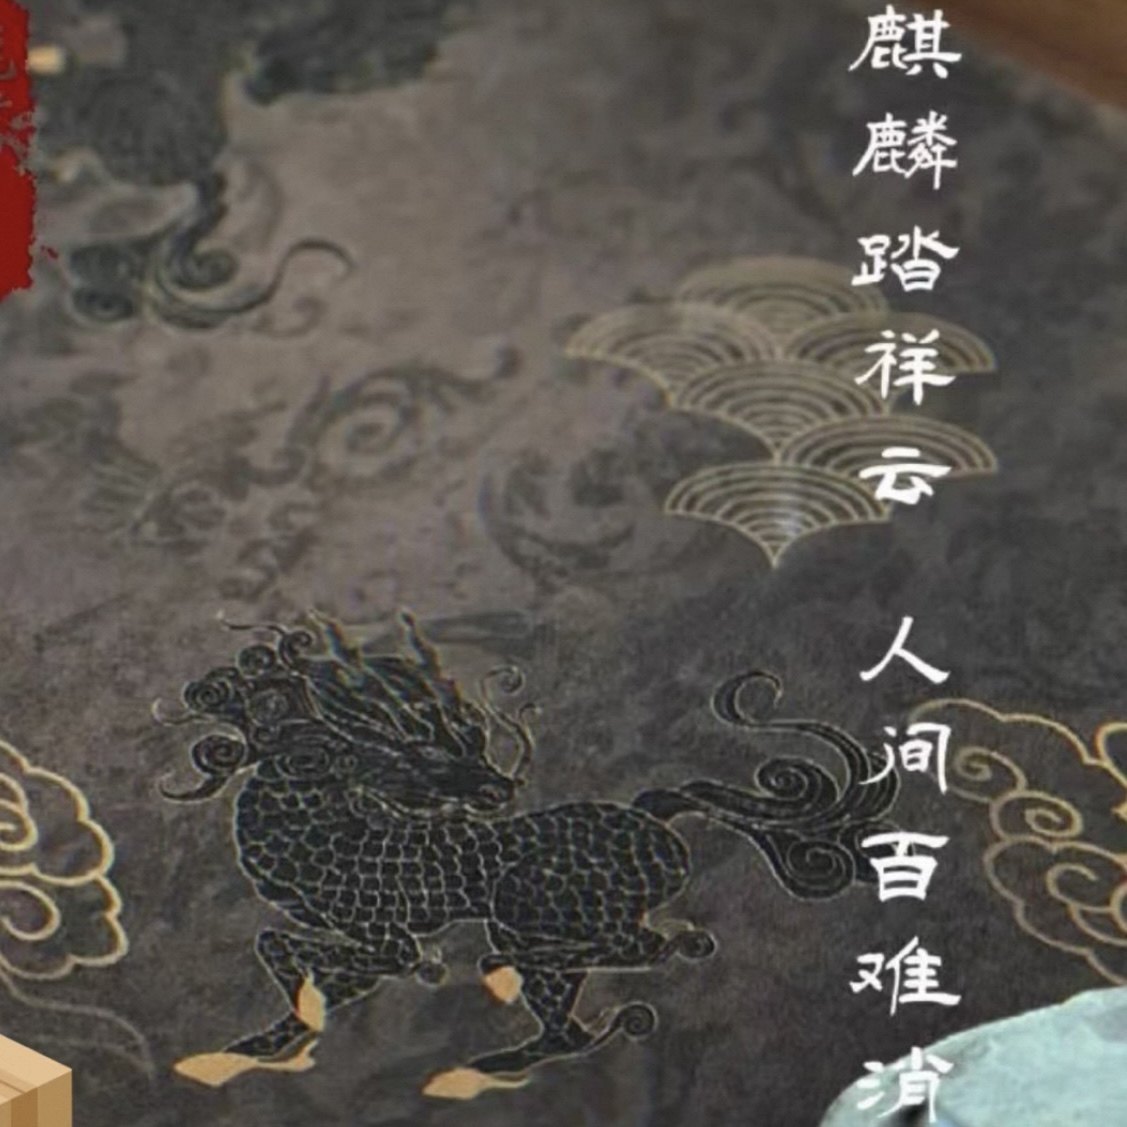 麒麟踏祥云 人间百难消